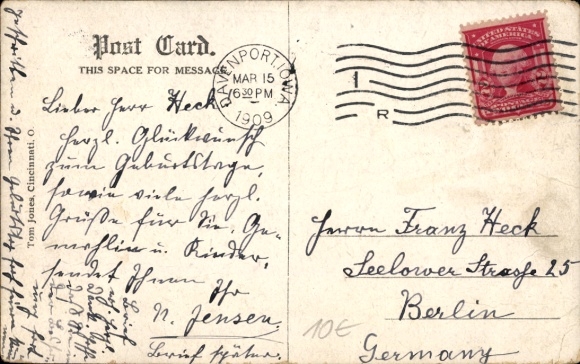 Post Card.
THIS SPACE FOR MESSAGE
DAVENPORT, IOWA
MAR 15
6 30 PM
1909
R
UNITED STATES
OF AMERICA
Lieber Herr Heck
herzl. Glückwunsch
zum Geburtstage,
sowie viele herzl.
Grüße für Sie, Ge-
mahlin u. Kinder,
sendet Ihnen Ihr
N. Jensen.
Brief später.
Tom Jones, Cincinnati, O.
Herrn Franz Heck
Seelower Strasse 25
Berlin
Germany
10€